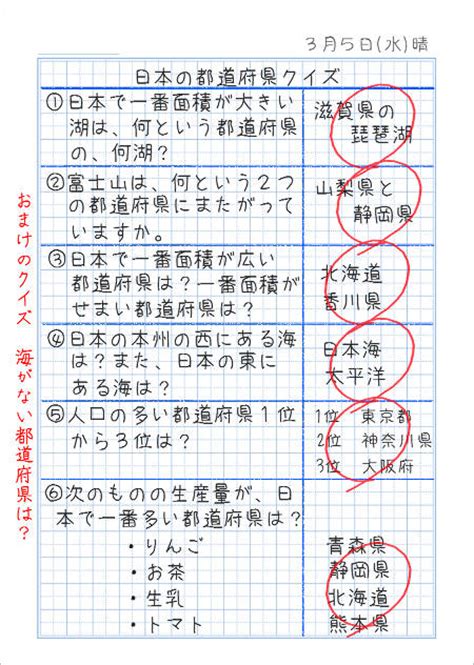 3月5日(水)晴
日本の都道府県クイズ
①日本で一番面積が大きい
湖は、何という都道府県
の、何湖？
滋賀県の
琵琶湖
②富士山は、何という2つ
の都道府県にまたがって
いますか。
山梨県と
静岡県
③日本で一番面積が広い
都道府県は？一番面積が
せまい都道府県は？
北海道
香川県
④日本の本州の西にある海
は？また、日本の東に
ある海は？
日本海
太平洋
⑤人口の多い都道府県1位
から3位は？
1位 東京都
2位 神奈川県
3位 大阪府
⑥次のものの生産量が、日
本で一番多い都道府県は？
・りんご 青森県
・お茶 静岡県
・生乳 北海道
・トマト 熊本県
おまけのクイズ 海がない都道府県は？